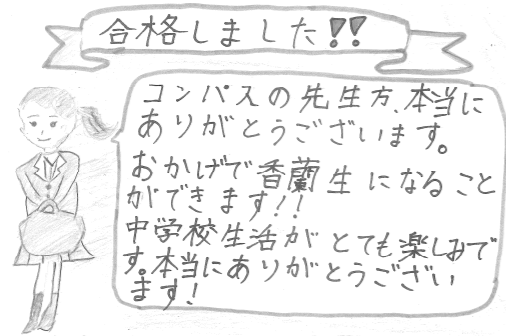 合格しました!!
コンパスの先生方、本当に
ありがとうございます。
おかげで香蘭生になること
ができます!!
中学校生活がとても楽しみで
す。本当にありがとうござい
ます!